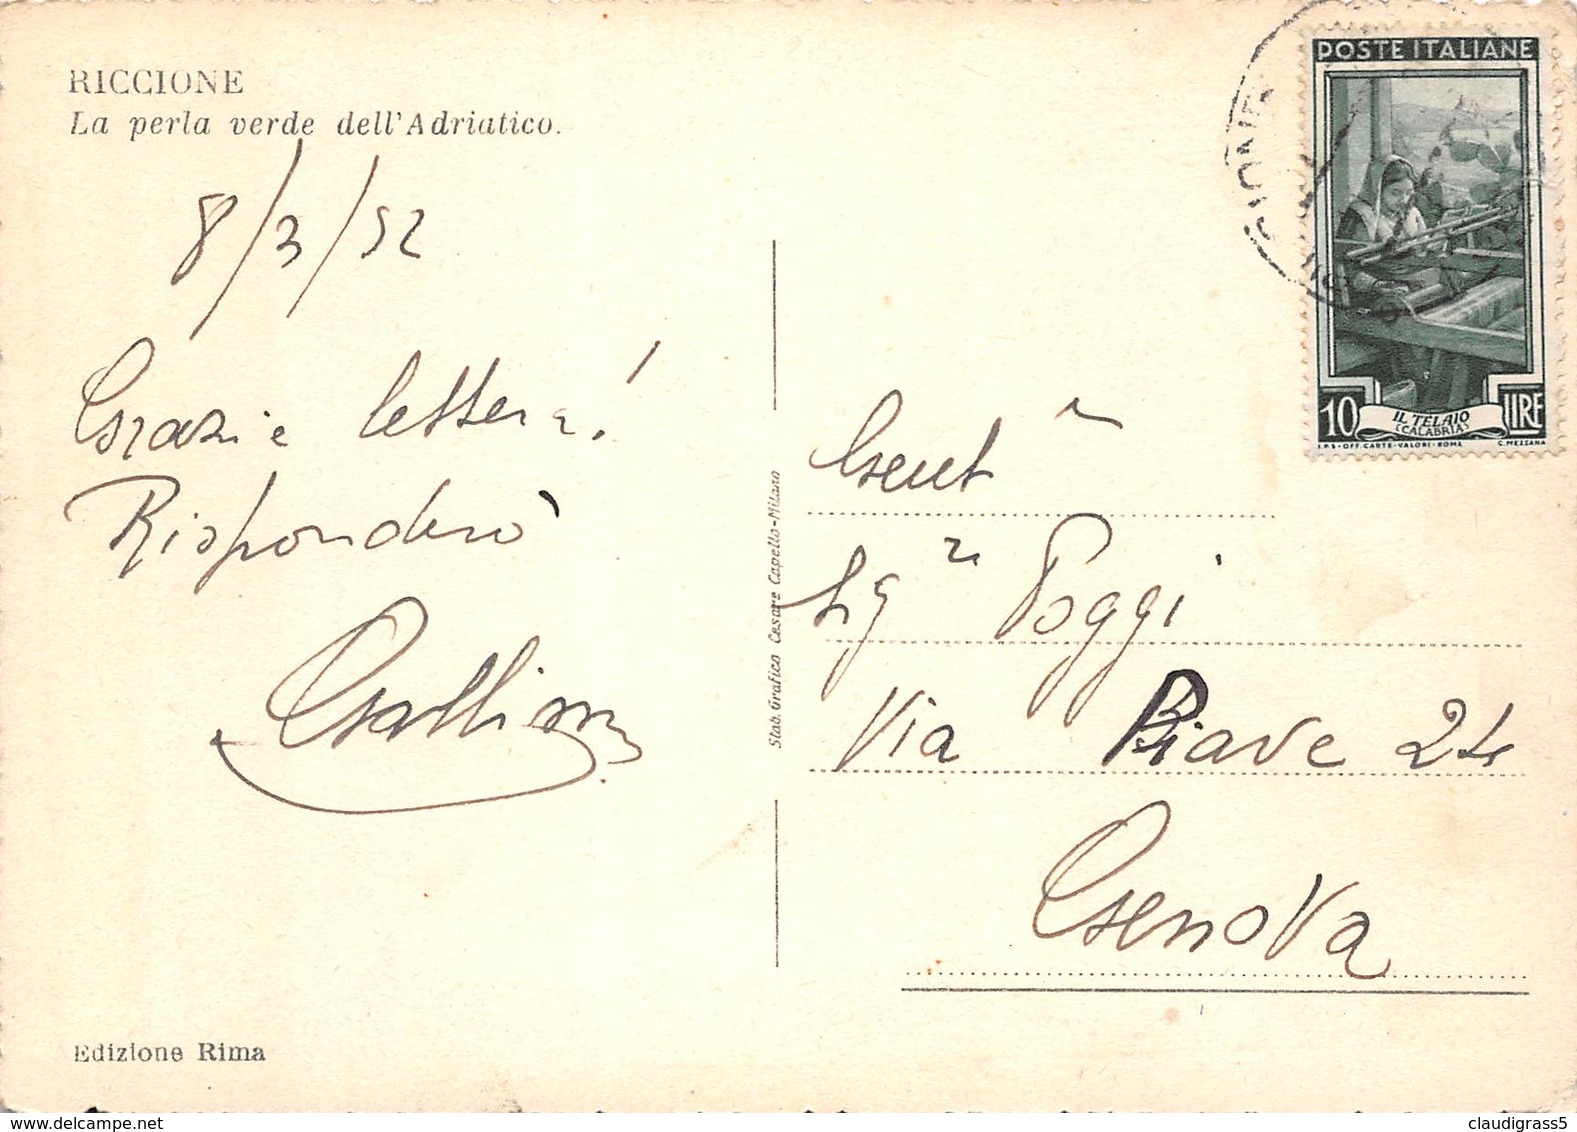 RICCIONE
La perla verde dell'Adriatico.
8/3/52
Grazie lettera!
Risponderò
Edizione Rima
Stab. Grafico Cesare Capello-Milano
POSTE ITALIANE
10 LIRE
IL TELAIO
(CALABRIA)
I.P.S-OFF. CARTE-VALORI-ROMA C. MEZZANA
Gent
Sg Poggi
Via Piave 24
Genova
claudigrass5